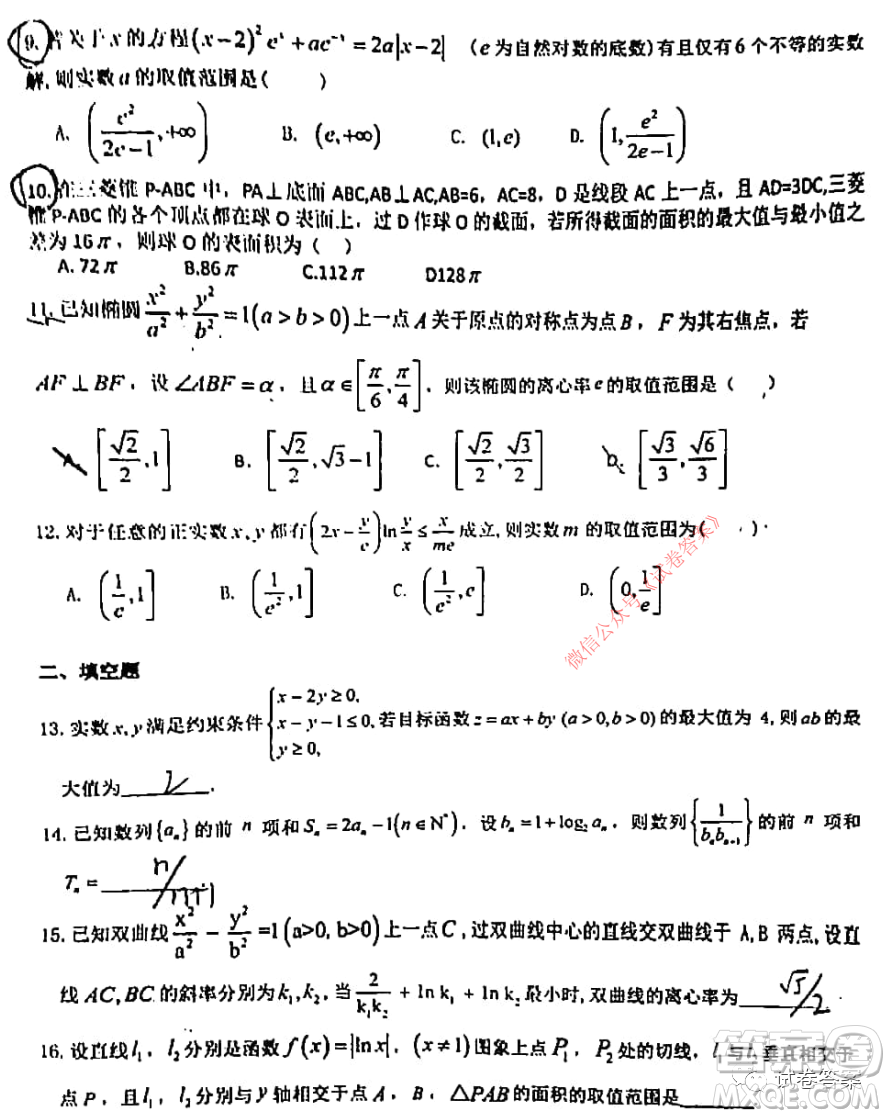 9. 若关于x的方程(x-2)²eˣ+ae⁻ˣ=2a|x-2| (e为自然对数的底数)有且仅有6个不等的实数
解,则实数a的取值范围是( )
A. (e²/(2e-1),+∞) B. (e,+∞) C. (1,e) D. (1,e²/(2e-1))
10. 在三棱锥 P-ABC 中, PA⊥底面 ABC,AB⊥AC,AB=6, AC=8, D是线段 AC 上一点, 且 AD=3DC,三棱
锥P-ABC 的各个顶点都在球 O 表面上, 过 D 作球 O 的截面, 若所得截面的面积的最大值与最小值之
差为 16π, 则球 O 的表面积为( )
A. 72π B.86π C.112π D128π
11. 已知椭圆x²/a²+y²/b²=1(a>b>0)上一点A关于原点的对称点为点B, F为其右焦点, 若
AF⊥BF, 设∠ABF=α, 且α∈[π/6,π/4], 则该椭圆的离心率e的取值范围是( )
A. [√2/2,1] B. [√2/2,√3-1] C. [√2/2,√3/2] D. [√3/3,√6/3]
12. 对于任意的正实数x,y都有(2x-y/e)ln y/x≤x/me成立,则实数m的取值范围为( )
A. (1/e,1] B. (1/e²,1] C. (1/e²,e] D. (0,1/e]
微信公众号《试卷答案》
二、填空题
13. 实数x,y满足约束条件{x-2y≥0, x-y-1≤0, y≥0, 若目标函数z=ax+by(a>0,b>0)的最大值为4,则ab的最
大值为 2 .
14. 已知数列{aₙ}的前n项和Sₙ=2aₙ-1(n∈N*), 设bₙ=1+log₂aₙ, 则数列{1/(bₙbₙ₊₁)}的前n项和
Tₙ= n/n+1
15. 已知双曲线x²/a²-y²/b²=1(a>0, b>0)上一点C, 过双曲线中心的直线交双曲线于 A,B 两点,设直
线AC,BC的斜率分别为k₁,k₂, 当2/(k₁k₂)+ln k₁+ln k₂最小时,双曲线的离心率为 √5/2
16. 设直线l₁, l₂分别是函数f(x)=|lnx|, (x≠1)图象上点P₁, P₂处的切线, l₁与l₂垂直相交于
点P, 且l₁, l₂分别与y轴相交于点A, B, △PAB的面积的取值范围是
试卷答案
MXQE.COM